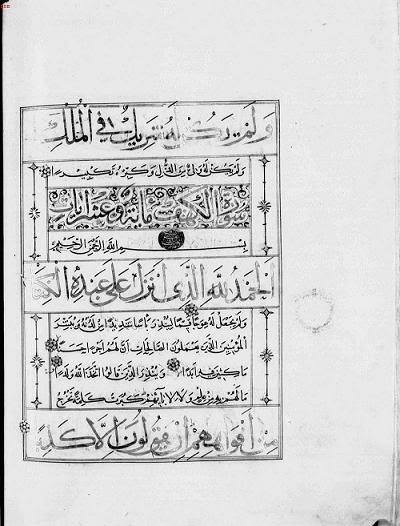 وَلَمْ يَكُنْ لَهُ شَرِيكٌ فِي الْمُلْكِ
وَلَمْ يَكُنْ لَهُ وَلِيٌّ مِنَ الذُّلِّ وَكَبِّرْهُ تَكْبِيرًا
سورة الكهف مائة وعشر آيات
بسم الله الرحمن الرحيم
الْحَمْدُ لِلَّهِ الَّذِي أَنْزَلَ عَلَى عَبْدِهِ الْكِتَابَ
وَلَمْ يَجْعَلْ لَهُ عِوَجًا قَيِّمًا لِيُنْذِرَ بَأْسًا شَدِيدًا مِنْ لَدُنْهُ وَيُبَشِّرَ
الْمُؤْمِنِينَ الَّذِينَ يَعْمَلُونَ الصَّالِحَاتِ أَنَّ لَهُمْ أَجْرًا حَسَنًا
مَاكِثِينَ فِيهِ أَبَدًا وَيُنْذِرَ الَّذِينَ قَالُوا اتَّخَذَ اللَّهُ وَلَدًا
مَا لَهُمْ بِهِ مِنْ عِلْمٍ وَلَا لِآبَائِهِمْ كَبُرَتْ كَلِمَةً تَخْرُجُ
مِنْ أَفْوَاهِهِمْ إِنْ يَقُولُونَ إِلَّا كَذِبًا